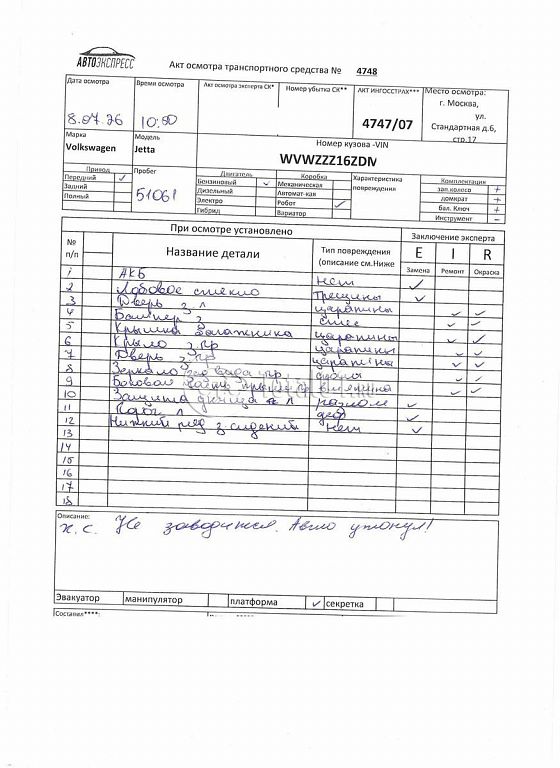 АВТОЭКСПРЕСС
Акт осмотра транспортного средства № 4748
Дата осмотра Время осмотра Акт осмотра эксперта СК* Номер убытка СК** АКТ ИНГОССТРАХ*** Место осмотра:
г. Москва,
8.07.26 10:00 4747/07 ул.
Стандартная д.6,
стр.17
Марка Модель Номер кузова -VIN
Volkswagen Jetta WVWZZZ16ZDM
Привод Пробег Двигатель Коробка Характеристика повреждения Комплектация
Передний ✓ 51061 Бензиновый ✓ Механическая зап.колесо +
Задний Дизельный Автомат-кая домкрат +
Полный Электро Робот ✓ бал. Ключ +
Гибрид Вариатор Инструмент –
При осмотре установлено Заключение эксперта
№ п/п Название детали Тип повреждения (описание см.Ниже E Замена I Ремонт R Окраска
1 АКБ нет ✓
2 Лобовое стекло трещины ✓
3 Дверь з.л царапины ✓ ✓
4 Бампер з
5 Крышка багажника царапины
6 Крыло з.пр царапины
7 Дверь з.пр царапина
8 Зеркало
9 Боковой вмятина
10 Защита днища л разлом ✓
11 л деф ✓
12 Нижний ряд з.сидений нет ✓
13
14
15
16
17
18
Описание:
х.с. Не заводится. Авто утонул!
Эвакуатор манипулятор платформа ✓ секретка
Составил****: